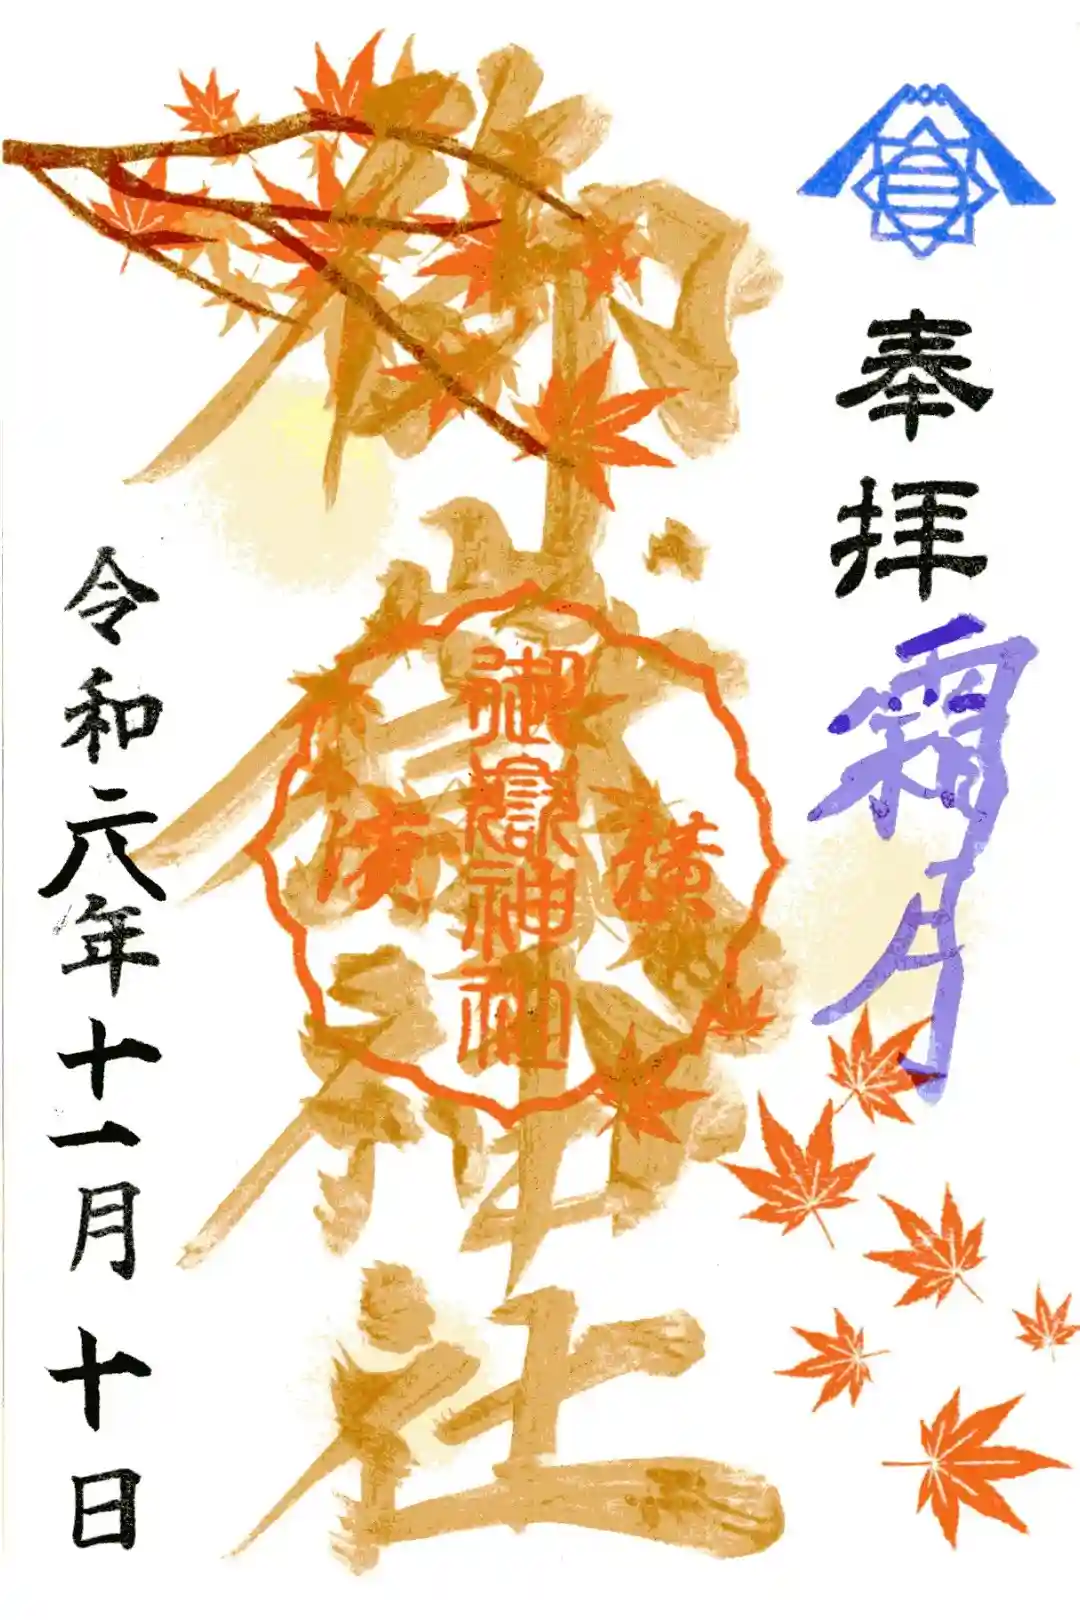 奉拝
霜月
御嶽神社
横濱
御嶽神社
令和六年十一月十日